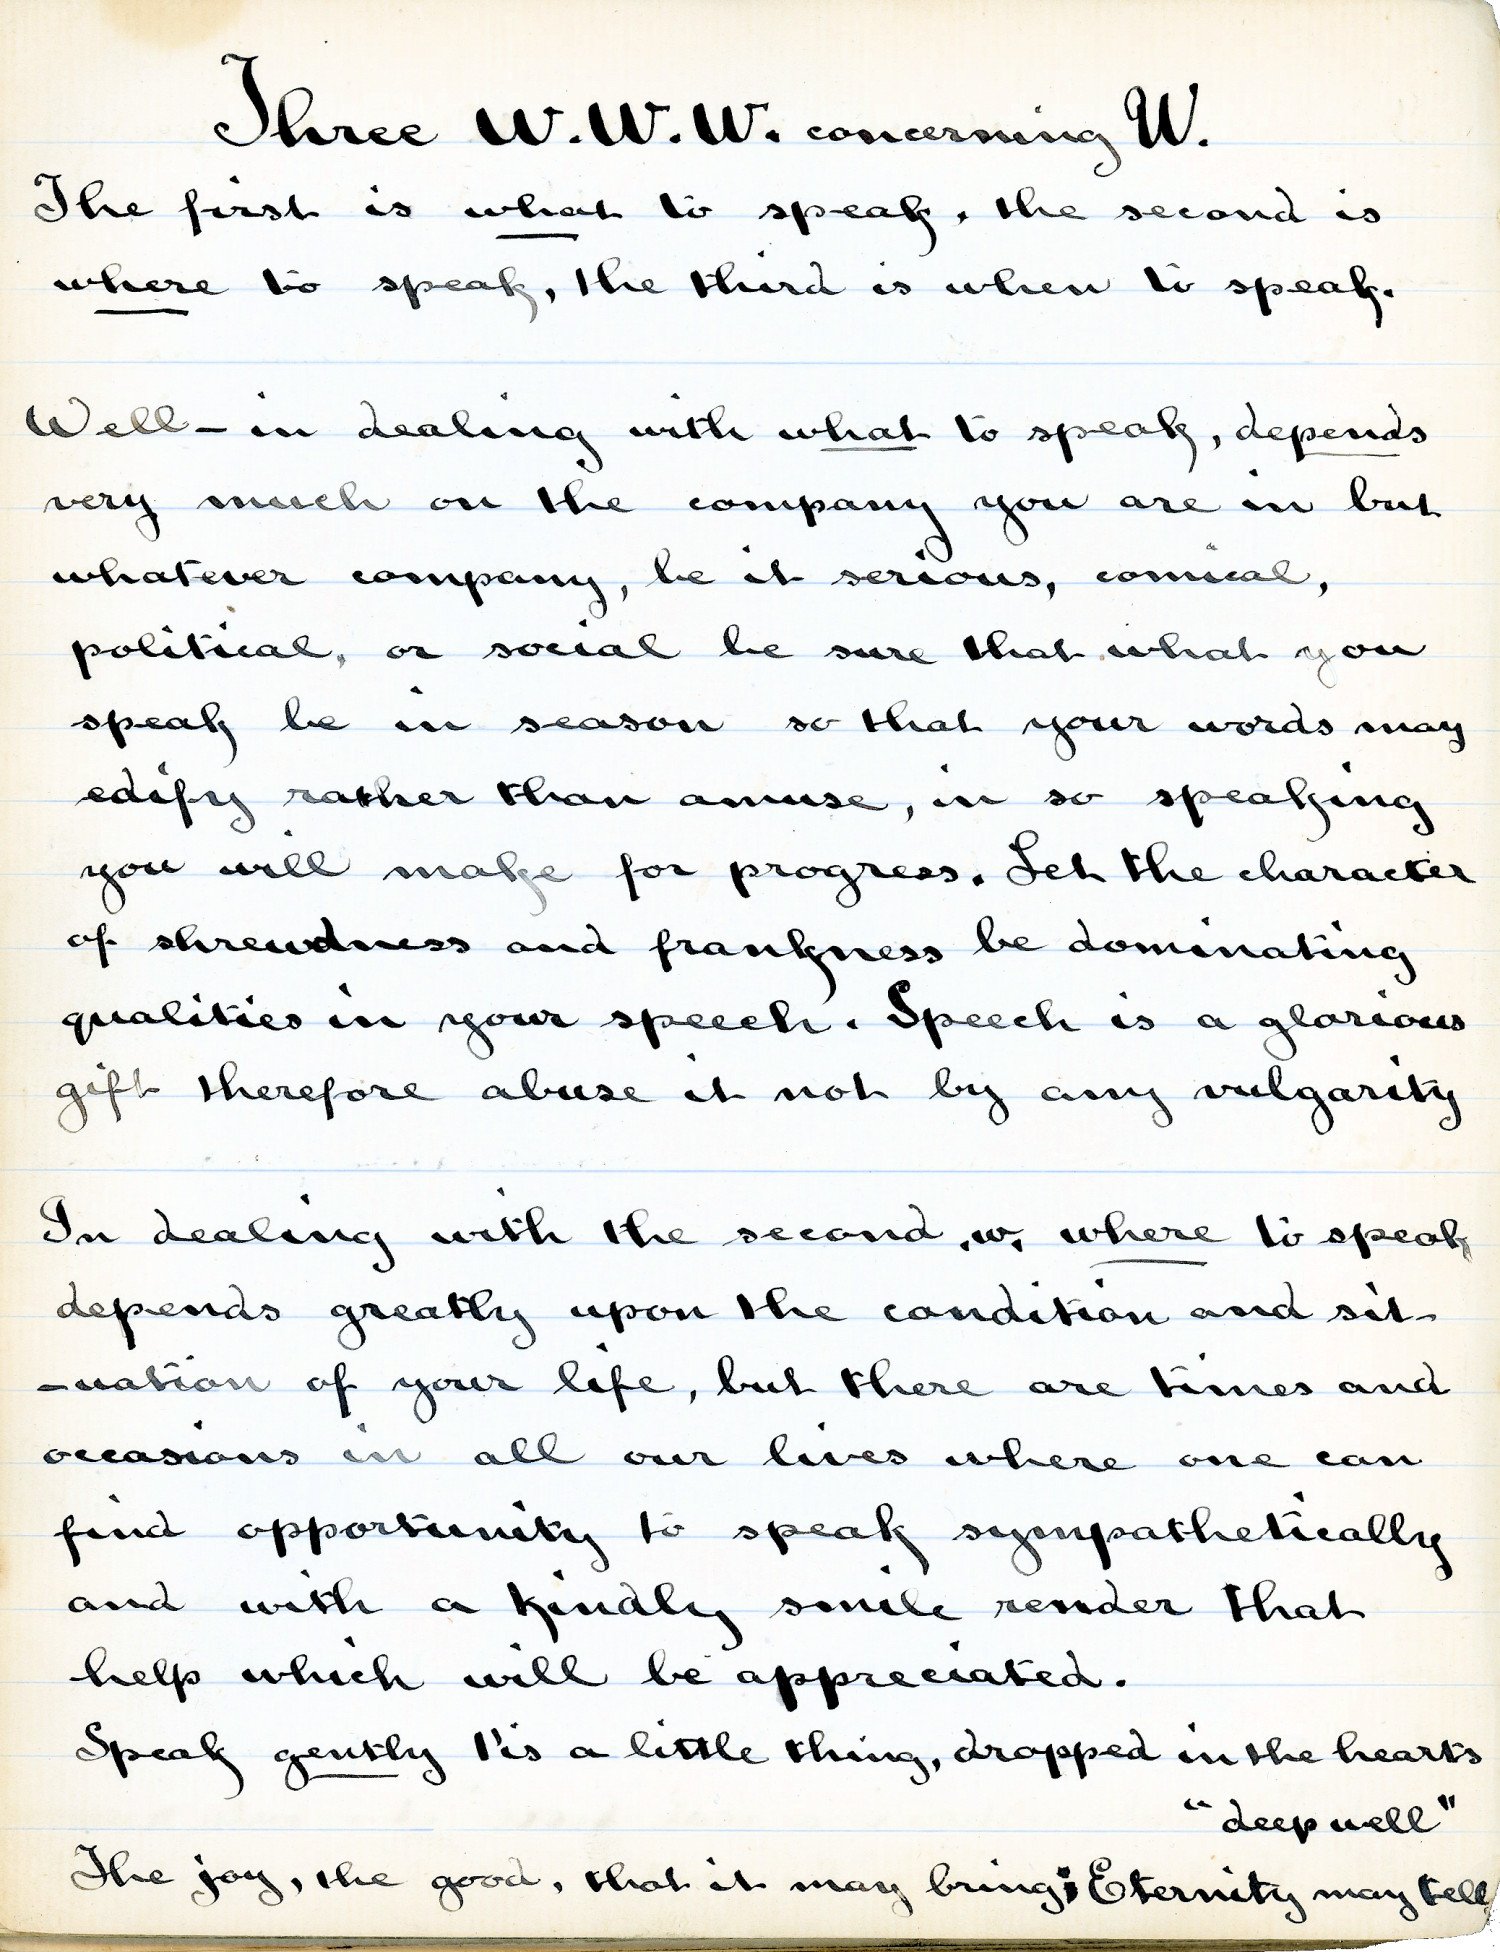 Three W. W. W. concerning W.
The first is what to speak, the second is
where to speak, the third is when to speak.
Well - in dealing with what to speak, depends
very much on the company you are in but
whatever company, be it serious, comical,
political, or social be sure that what you
speak be in season so that your words may
edify rather than amuse, in so speaking
you will make for progress. Let the character
of shrewdness and frankness be dominating
qualities in your speech. Speech is a glorious
gift therefore abuse it not by any vulgarity
In dealing with the second .w. where to speak
depends greatly upon the condition and sit-
-uation of your life, but there are times and
occasions in all our lives where one can
find opportunity to speak sympathetically
and with a kindly smile render that
help which will be appreciated.
Speak gently t'is a little thing, dropped in the hearts
"deep well"
The joy, the good, that it may bring; Eternity may tell